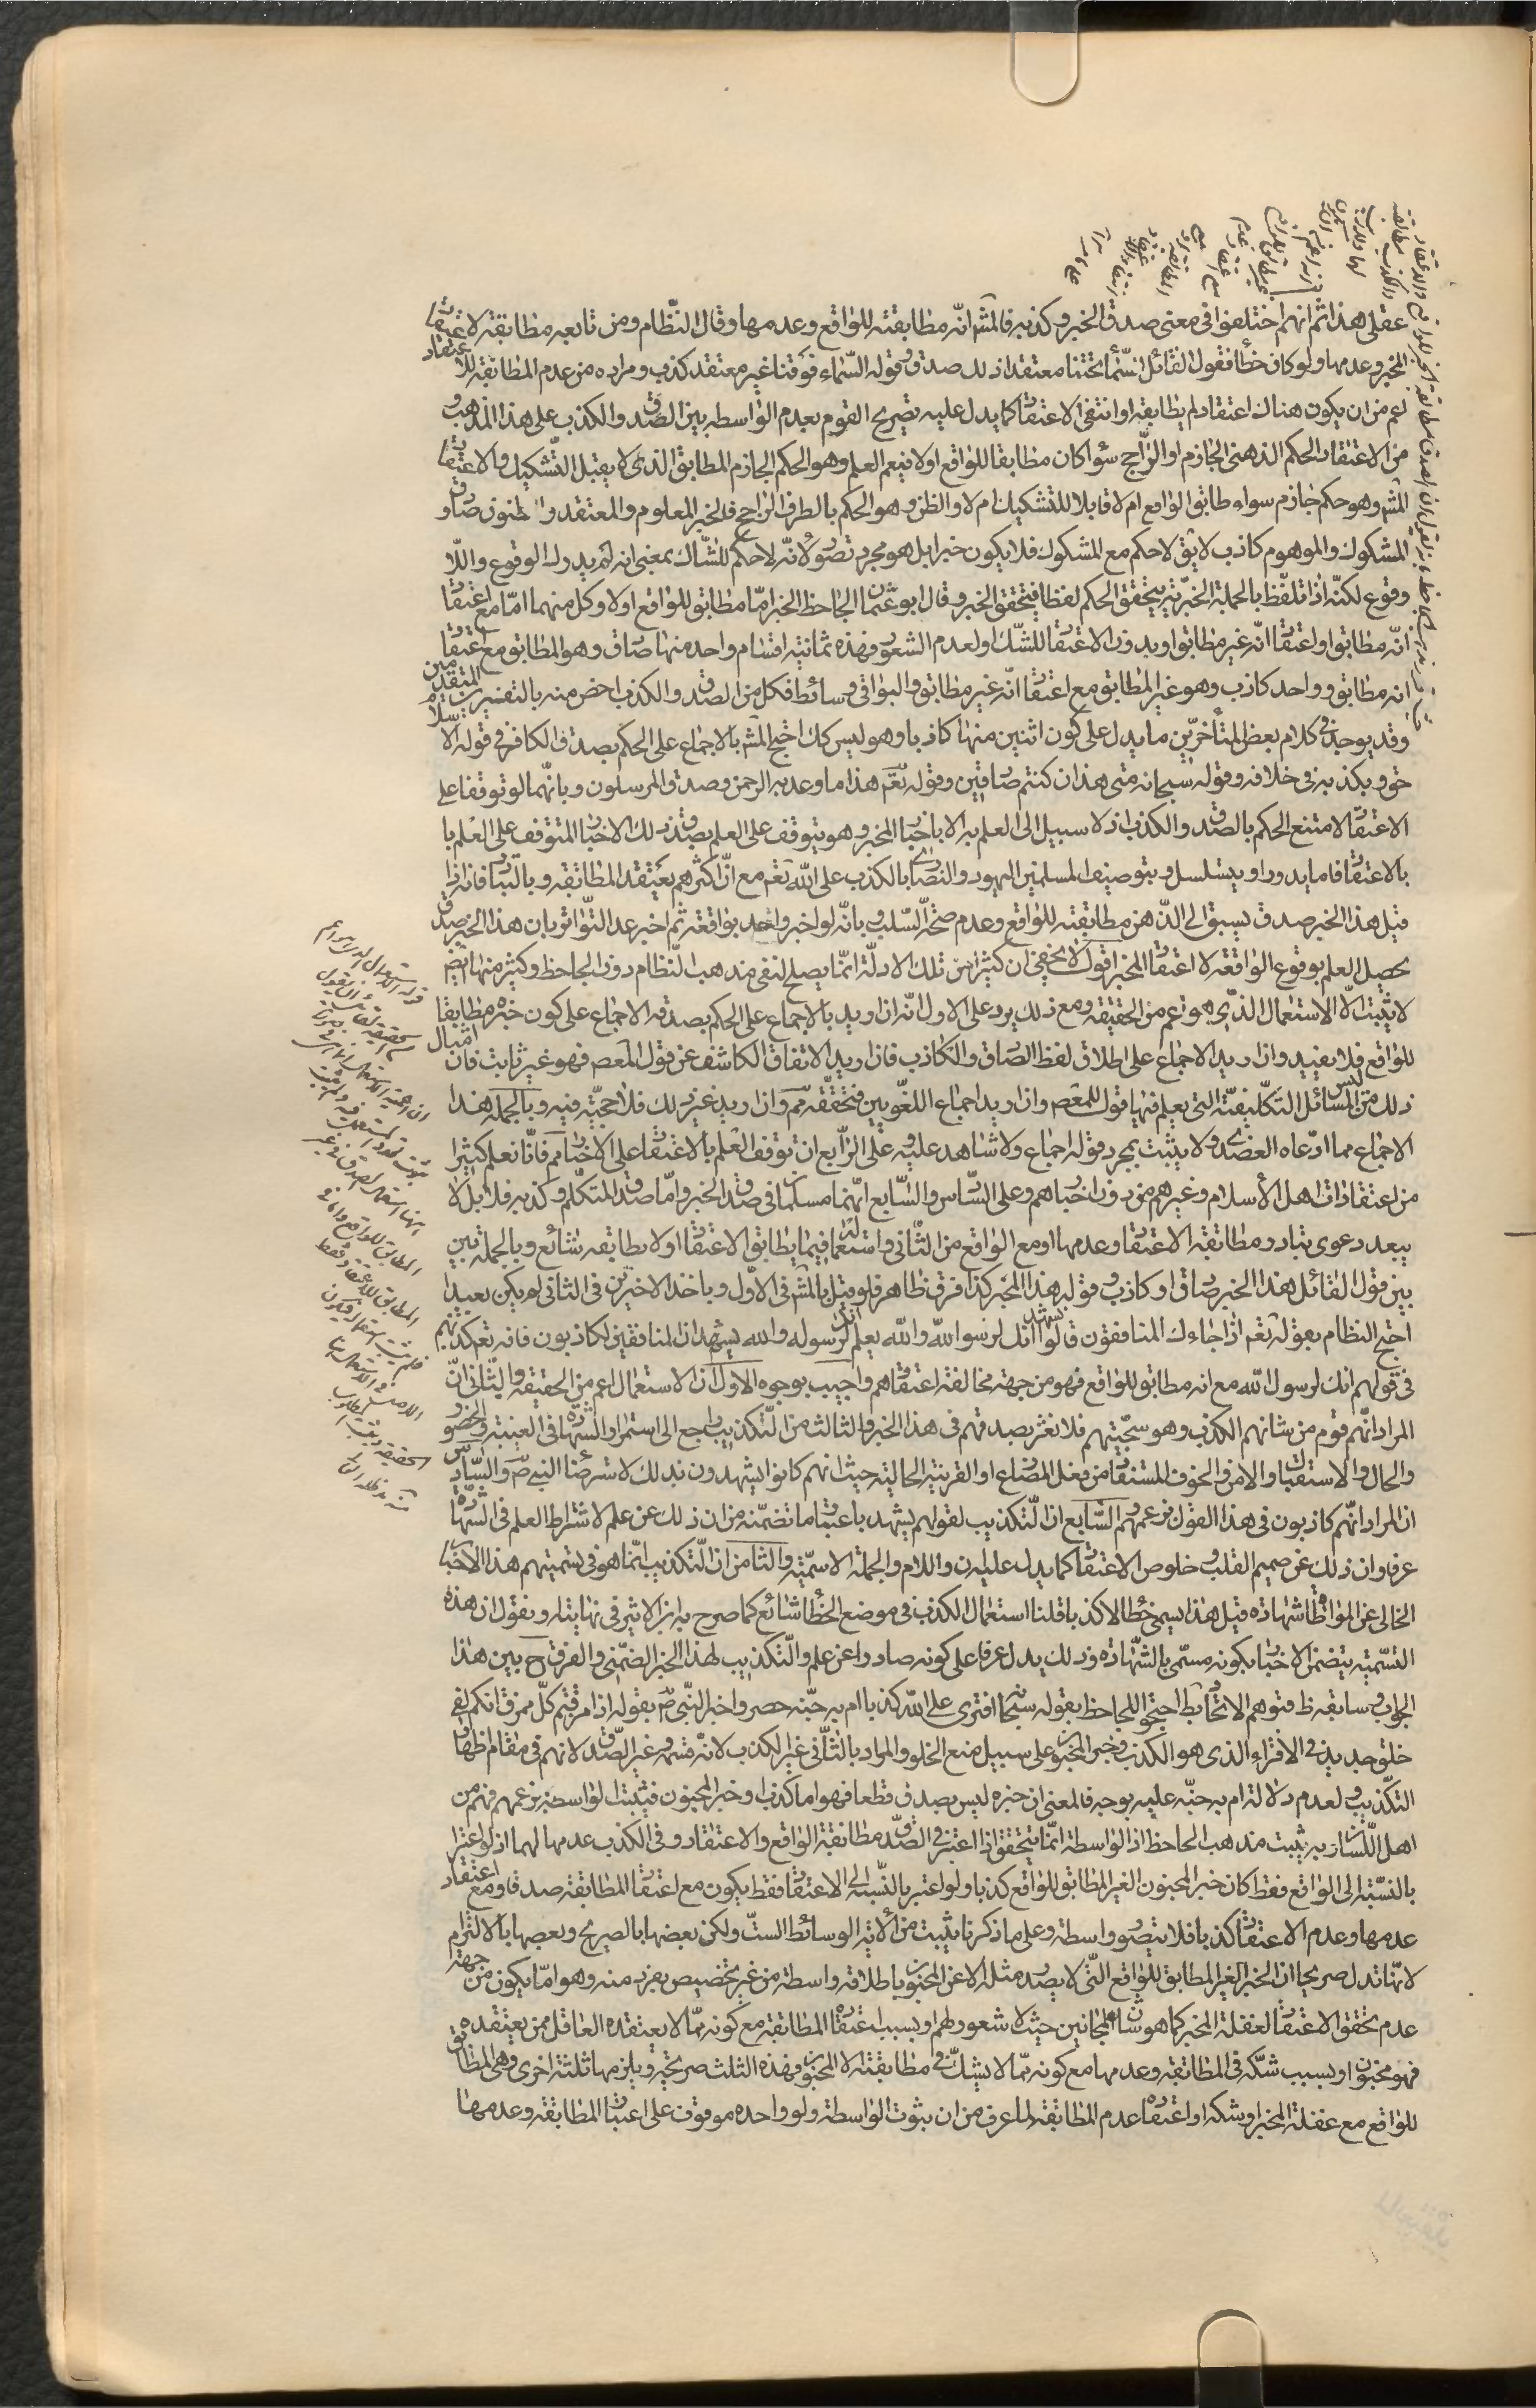 عقلى هذا ثم انهم اختلفوا فى معنى صدق الخبر وكذبه فالمش انّه مطابقته للواقع وعدمها وقال النظّام ومن تابعه مطابقته لاعتقاد
المخبر وعدمها ولو كان خطأ فقول القائل السّماء تحتنا معتقدا ذلك صدق وقوله السّماء فوقنا غير معتقد كذب ومراده من عدم المطابقة للاعتقاد
اعم من ان يكون هناك اعتقاد لم يطابقه او انتفى الاعتقاد كما يدل عليه تصريح القوم بعدم الواسطه بين الصّدق والكذب على هذا المذهب و
من الاعتقاد الحكم الذهنى الجازم او الرّاجح سواء كان مطابقا للواقع اولا فيعم العلم وهو الحكم الجازم المطابق الذى لا يقبل التّشكيك والاعتقاد
المش وهو حكم جازم سواء طابق الواقع ام لا قابلا للتشكيك ام لا والظن وهو الحكم بالطرف الراجح فالخبر المعلوم والمعتقد والمظنون صادق و
المشكوك والموهوم كاذب لايق لا حكم مع المشكوك فلا يكون خبرا بل هو مجرد تصوّر لانّه لا حكم للشّاك بمعنى انه لم يدرك الوقوع واللّا
وقوع لكنّه اذا تلفّظ بالجملة الخبرّية يتحقق الحكم لفظا فيتحقق الخبر وقال ابو عثمان الجاحظ الخبر امّا مطابق للواقع اولا وكل منهما امّا مع اعتقاد
انّه مطابق او اعتقاد انّه غير مطابق او بدون الاعتقاد للشّك او لعدم الشعور فهذه ثمانية اقسام واحده منها صادق وهو المطابق مع اعتقاد
انه مطابق وواحد كاذب وهو غير المطابق مع اعتقاد انّه غير مطابق والبواقى وسائط فكل من الصّدق والكذب اخص منه بالتفسيرين المتقدمين
وقد يوجد فى كلام بعض المتأخّرين ما يدل على كون اثنين منها كاذبا وهو ليس كك احتج المش بالاجماع على الحكم بصدق الكافر فى قوله الاسلام
حق وبكذبه فى خلافه وقوله سبحانه متى هذا ان كنتم صادقين وقوله تعم هذا ما وعد به الرحمن وصدق المرسلون وبانّهما لو توقفا على
الاعتقاد لامتنع الحكم بالصدق والكذب اذ لا سبيل الى العلم به الا باخبار المخبر وهو يتوقف على العلم بصدق ذلك الاخبار المتوقف على العلم با
بالاعتقاد فاما يدور او يتسلسل وبتوصيف المسلمين اليهود والنصارى بالكذب على الله تعم مع انّ اكثرهم يعتقد المطابقه وبالتبادر فانه اذا
قيل هذا الخبر صدق يسبق الى الذّهن مطابقته للواقع وعدم صحّة السّلب وبانّه لو اخبر واحد بواقعة ثم اخبر عدد التّواتر بان هذا الخبر صدق
يحصل العلم بوقوع الواقعة لا اعتقاد المخبر اقول لا يخفى ان كثيرا من تلك الادلّة انّما يصلح لنفى مذهب النّظام دون الجاحظ وكثير منها ايضا
لا يثبت الّا الاستعمال الذّى هو اعم من الحقيقه ومع ذلك يرد على الاول انّه ان اريد بالاجماع على الحكم بصدقه الاجماع على كون خبره مطابقا
للواقع فلا يفيد وان اريد الاجماع على اطلاق لفظ الصّادق والكاذب فان اريد الاتفاق الكاشف عن قول المعصم فهو غير ثابت فان امثال
ذلك ليس من المسائل التّكليفيّة التى يعلم فيها قول المعصم وان اريد اجماع اللغّويين فتحقّقه مم وان اريد غير ذلك فلا حجّيّه فيه وبالجمله هذا
الاجماع مما ادّعاه العضدى ولا يثبت بمجرد قوله اجماع ولا شاهد عليه وعلى الرّابع ان توقف العلم بالاعتقاد على الاخبار مم فانّا نعلم كثيرا
من اعتقادات اهل الأسلام وغيرهم من دون اخبارهم وعلى السّادس والسّابع انّهما مسلمان فى صدق الخبر وامّا صدق المتكلّم وكذبه فلا بل لا
يبعد دعوى تبادر مطابقة الاعتقاد وعدمها او مع الواقع من الثّانى واستعماله فيما يطابق الاعتقاد اولا يطابقه شائع وبالجمله بين
بين قول القائل هذا الخبر صادق او كاذب وقوله هذا المخبر كذا فرق ظاهر فلو قيل بالمش فى الاوّل وباحد الاخيرين فى الثانى لم يكن بعيدا
احتج النظام بقوله تعم اذا جاءك المنافقون قالوا نشهد انك لرسول الله والله يعلم انك لرسوله والله يشهد ان المنافقين لكاذبون فانه تعم كذّبهم
فى قولهم انك لرسول الله مع انه مطابق للواقع فهو من جهة مخالفة اعتقادهم واجيب بوجوه الأول ان الاستعمال اعم من الحقيقه والثانى انّ
المراد انّهم قوم من شانهم الكذب وهو سجيّتهم فلا تغتر بصدقهم فى هذا الخبر والثالث من التّكذيب راجع الى استمرار الشهادة فى الغيبة والحضور
والحال والاستقبال والامن والخوف المستفاد من فعل المضارع او القرينة الحالية حيث انهم كانوا يشهدون بذلك لاسترضاء النبى ص والسّادس
ان المراد انّهم كاذبون فى هذا القول بزعمهم السّابع ان التّكذيب لقولهم نشهد باعتبار ما تضمّنه من ان ذلك عن علم لاشتراط العلم فى الشّهادة
عرفا وان ذلك عن صميم القلب وخلوص الاعتقاد كما يدل عليه ان واللام والجملة الاسميّة والثّامن ان التّكذيب انّما هو فى تسميتهم هذا الاخبار
الخالى عن المواطاة شهاده قيل هذا يسمى خطأ لا كذبا قلنا استعمال الكذب فى موضع الخطأ شائع كما صرح به ابن الاثير فى نهايته او نقول ان هذه
التسّميه يتضمن الاخبار بكونه مسمّى بالشّهادة وذلك يدل عرفا على كونه صادرا عن علم والتّكذيب لهذا الخبر الضّمنى والفرق ح بين هذا
الجواب وسابقه ظ فتوهم الاتّحاد بط احتجّ الجاحظ بقوله سبحانه افترى على الله كذبا ام به جنّه حصروا خبر النّبى ص بقوله اذا مزقتم كلّ ممزق انكم لفى
خلق جديد فى الافتراء الذى هو الكذب وخبر المجنون على سبيل منع الخلو والمراد بالثّانى غير الكذب لانّه قسيمه وغير الصّدق لانهم فى مقام اظهار
التكّذيب ولعدم دلالة ام به جنّه عليه بوجه فالمعنى ان خبره ليس بصدق قطعا فهو اما كذب او خبر المجنون فيثبت الواسطة بزعمهم فهم من
اهل اللّسان وبه يثبت مذهب الجاحظ اذ الواسطة انّما يتحقق اذا اعتبر فى الصّدق مطابقة الواقع والاعتقاد وفى الكذب عدمها لهما اذ لو اعتبرا
بالنسّبة الى الواقع فقط كان خبر المجنون الغير المطابق للواقع كذبا ولو اعتبر بالنّسبة الى الاعتقاد فقط يكون مع اعتقاد المطابقة صدقا ومع اعتقاد
عدمها وعدم الاعتقاد كذبا فلا يتصوّر واسطة وعلى ما ذكرنا يثبت من الأية الوسائط الستّ ولكن بعضها بالصريح وبعضها بالالتزام
لانّها تدل صريحا ان الخبر الغير المطابق للواقع التّى لا يصدر مثله الا عن المجنون باطلاقه واسطة من غير تخصيص بفرد منه وهو امّا يكون من جهة
عدم تحقق الاعتقاد لغفلة المخبر كما هو شان المجانين حيث لا شعور لهم او بسبب اعتقاده المطابقة مع كونه ممّا لا يعتقده العاقل ممن يعتقده
فهو مجنون او بسبب شكّه فى المطابقه وعدمها مع كونه ممّا لا يشكّ فى مطابقته الا المجنون وهذه الثلث صريحيّه ويلزمها ثلثة اخرى وهى المطابق
للواقع مع غفلة المخبر او شكه او اعتقاده عدم المطابقة لما عرف من ان ثبوت الواسطة ولو واحده موقوف على اعتبار المطابقه وعدمها